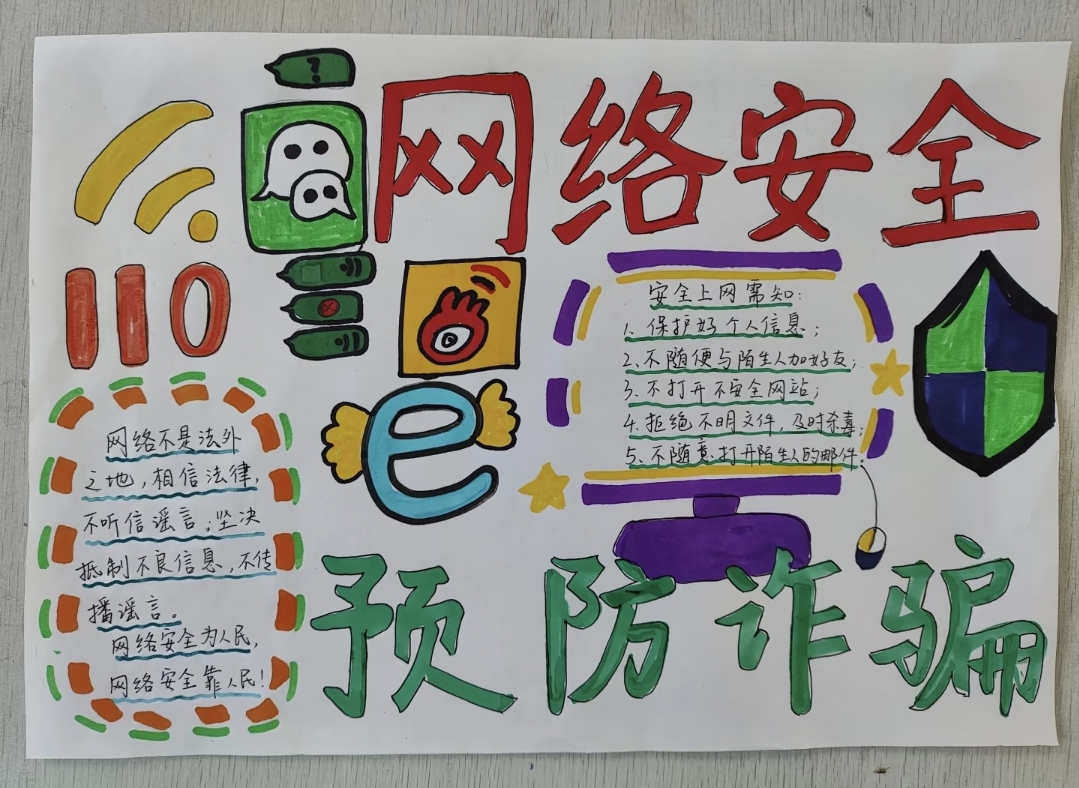 网络安全
110
安全上网需知:
1. 保护好个人信息;
2. 不随便与陌生人加好友;
3. 不打开不安全网站;
4. 拒绝不明文件,及时杀毒;
5. 不随意打开陌生人的邮件.
e
网络不是法外
之地,相信法律,
不听信谣言;坚决
抵制不良信息,不传
播谣言。
网络安全为人民,
网络安全靠人民!
预防诈骗